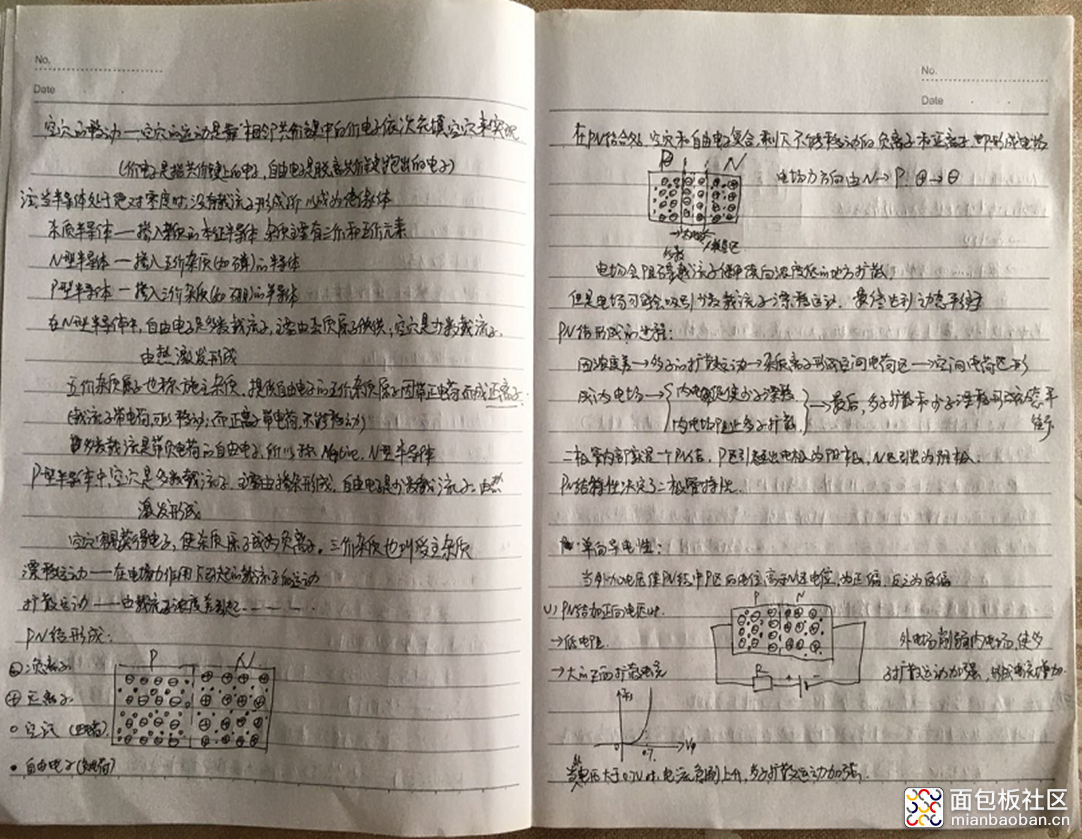 No.
Date
空穴的移动——空穴的运动是靠相邻共价键中的价电子依次充填空穴来实现
(价电子是指共价键上的电子,自由电子是脱离共价键跑出的电子)
注:当半导体处于绝对零度时,没有载流子形成,所以成为绝缘体
杂质半导体——掺入杂质的本征半导体,杂质主要有三价和五价元素
N型半导体——掺入五价杂质(如磷)的半导体
P型半导体——掺入三价杂质(如硼)的半导体
在N型半导体中,自由电子是多数载流子,主要由杂质原子提供;空穴是少数载流子,
由热激发形成
五价杂质原子也称施主杂质。提供自由电子的五价杂质原子因带正电荷而成正离子.
(载流子带电荷,可以移动;而正离子带电荷,不能移动)
多数载流是带负电荷的自由电子,所以称 N型半导体
P型半导体中,空穴是多数载流子,主要由掺杂形成,自由电子是少数载流子,由热
激发形成.
空穴很容易俘获电子,使杂质原子成为负离子。三价杂质也叫受主杂质
漂移运动——在电场力作用下引起的载流子的运动
扩散运动——由载流子浓度差引起------.
PN结形成:
⊖:负离子
⊕ 正离子
○ 空穴 (正电荷)
● 自由电子(负电荷)
P N
No.
Date
在PN结合处,空穴和自由电子复合,剩下不能移动的负离子和正离子,即形成电场
P N
电场力方向由N→P. ⊕→⊖
内电场
电场会阻碍载流子继续向浓度低的地方扩散,
但是电场可能会吸引少数载流子漂移运动. 最终达到动态平衡
PN结形成的过程:
因浓度差→多子的扩散运动→杂质离子形成空间电荷区→空间电荷区形
成内电场→
内电场促使少子漂移
内电场阻止多子扩散
→最后,多子扩散和少子漂移形成动态平
衡
二极管内部就是一个PN结,P区引出电极为阳极,N区引出为阴极.
PN结特性决定了二极管特性.
单向导电性:
当外加电压使PN结中P区的电位高于N区电位,为正偏,反之为反偏
(1) PN结加正向电压时.
→低电阻
→大的正向扩散电流
P N
R + -
外电场削弱内电场,使多
子扩散运动加强,形成电流增加.
0 0.7
当电压大于0.7V时,电流急剧上升,多子扩散运动加强.
面包板社区
mianbaoban.cn